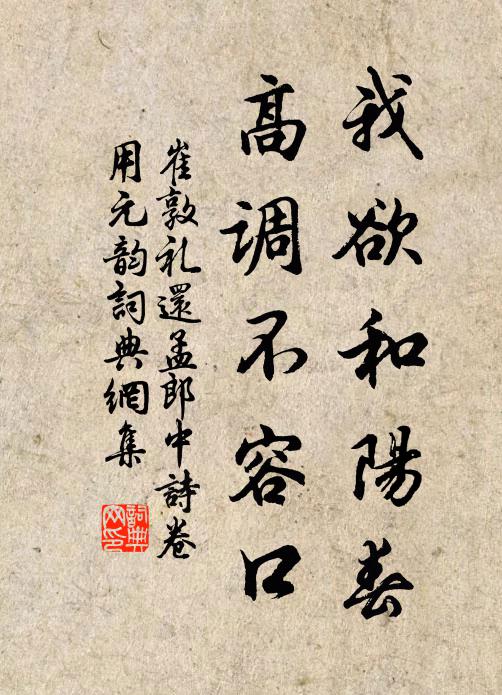 我欲和陽春
高调不容口
崔敦礼還孟郎中詩卷
用元韵詞典網集
詞典
网印